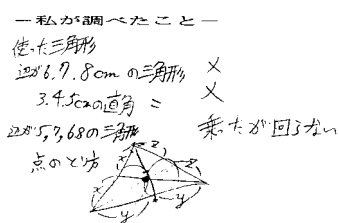 ―私が調べたこと―
使った三角形
辺が6.7.8cmの三角形 ×
3.4.5cmの直角 = ×
辺が5,7,6.8の三角形 乗ったが回らない
点のとり方
x z z x y y